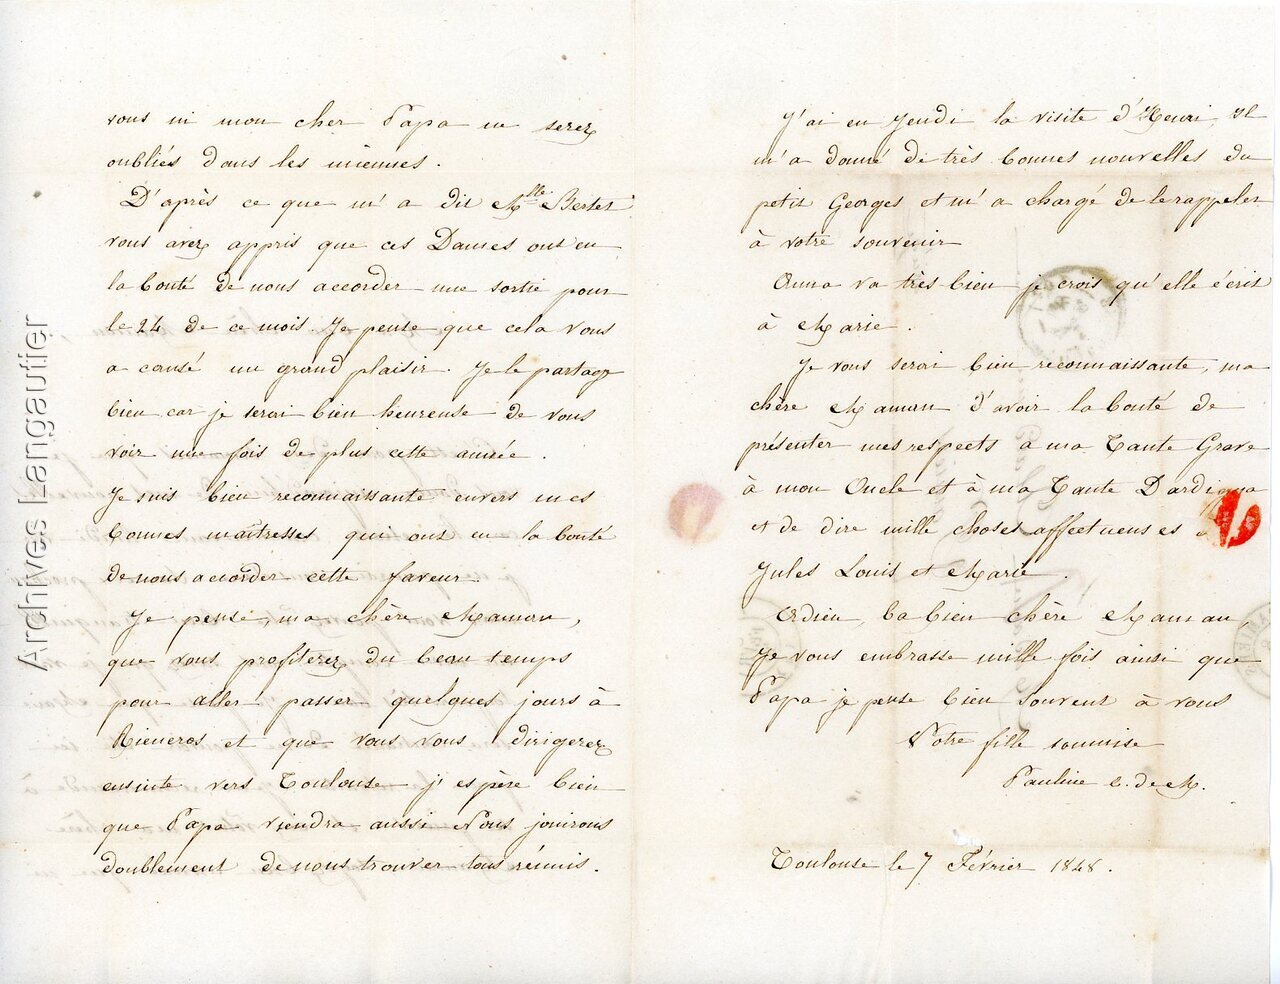 vous ni mon cher Papa ne serez
oubliés dans les miennes.
D'après ce que m'a dit Mlle Bertet
vous avez appris que ces Dames ont eu
la bonté de nous accorder une sortie pour
le 24 de ce mois. Je pense que cela vous
a causé un grand plaisir. Je le partage
bien car je serai bien heureuse de vous
voir une fois de plus cette année.
Je suis bien reconnaissante envers mes
bonnes maîtresses qui ont eu la bonté
de nous accorder cette faveur.
Je pense, ma chère Maman,
que vous profiterez du beau temps
pour aller passer quelques jours à
et que vous vous dirigerez
ensuite vers Toulouse j'espère bien
que Papa viendra aussi Nous jouirons
doublement de nous trouver tous réunis.
J'ai eu Jeudi la visite d'Henri, il
m'a donné de très bonnes nouvelles du
petit Georges et m'a chargé de le rappeler
à votre souvenir
Anna va très bien je crois qu'elle écrit
à Marie.
Je vous serai bien reconnaissante, ma
chère Maman d'avoir la bonté de
présenter mes respects à ma Tante Grave
à mon Oncle et à ma Tante
et de dire mille choses affectueuses
Jules Louis et Marie.
Adieu, ba bien chère Maman,
Je vous embrasse mille fois ainsi que
Papa je pense bien souvent à vous
Votre fille soumise
Pauline C. de M.
Toulouse le 7 Février 1848.
Archives Langautier